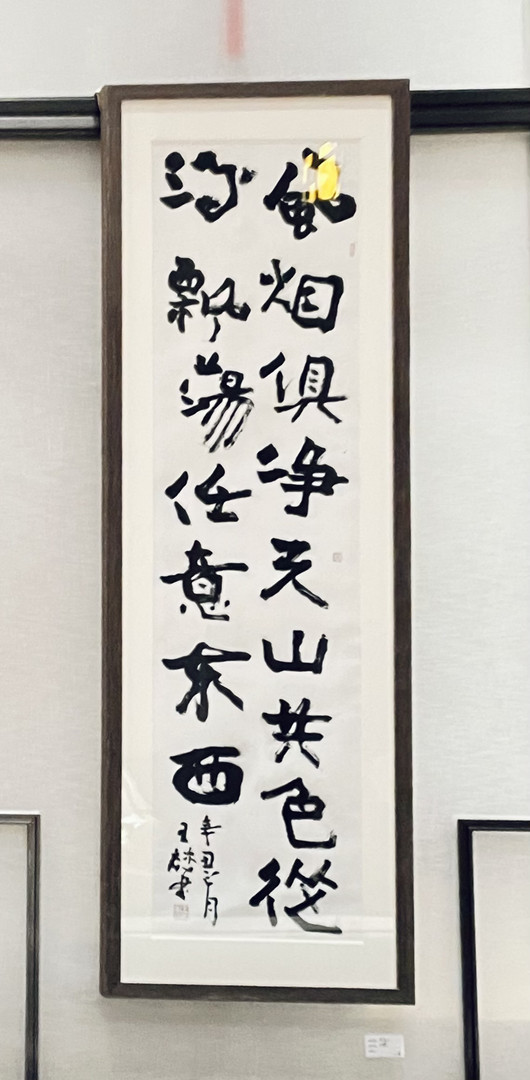 風烟俱净天山共色從
流飘蕩任意东西
辛丑月
王